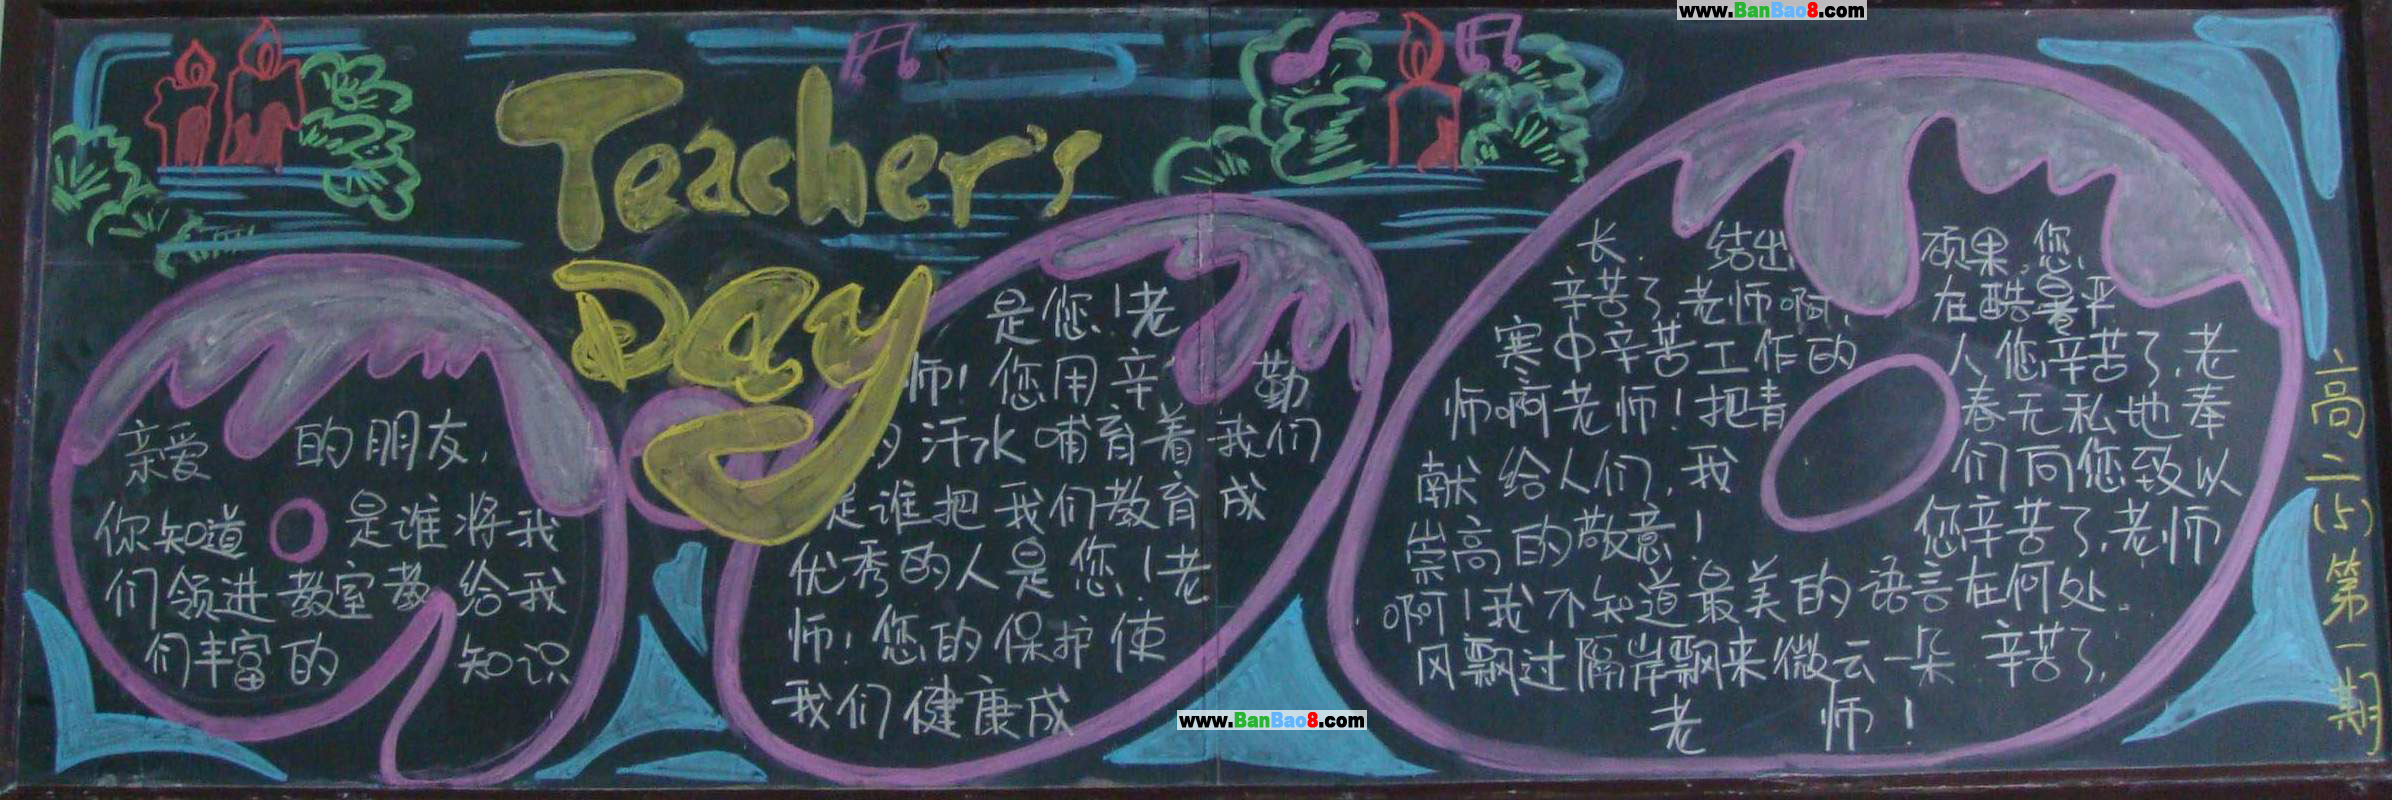 www.BanBao8.com
Teacher's
Day
亲爱的朋友,
你知道是谁将我
们领进教室教给我
们丰富的知识
是您!老
师!您用辛勤
汗水哺育着我们
是谁把我们教育成
优秀的人是您!老
师!您的保护使
我们健康成
长.结出硕果,您
辛苦了,老师啊,在酷暑严
寒中辛苦工作的人您辛苦了,老
师啊老师!把青春无私地奉
献给人们,我们向您致以
崇高的敬意!您辛苦了,老师
啊!我不知道最美的语言在何处.
风飘过隔岸飘来微云一朵 辛苦了,
老师!
高二(5)第一期
www.BanBao8.com